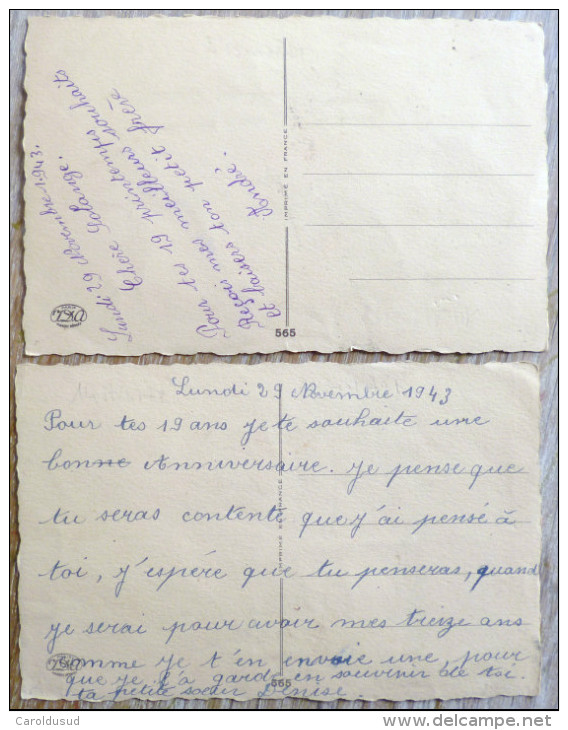 Lundi 29 Novembre 1943.
Chère Solange.
Pour tes 19 printemps
Reçois mes meilleurs souhaits
et baisers ton petit frère
André.
IMPRIMÉ EN FRANCE
565
Lundi 29 Novembre 1943
Pour tes 19 ans je te souhaite une
bonne Anniversaire. je pense que
tu seras contente que j'ai pensé à
toi, j'espére que tu penseras, quand
je serai pour avoir mes treize ans
comme je t'en envoie une, pour
que je la gard en souvenir de toi.
ta petite soeur Denise.
IMPRIME EN FRANCE
565
Caroldusud
www.delcampe.net